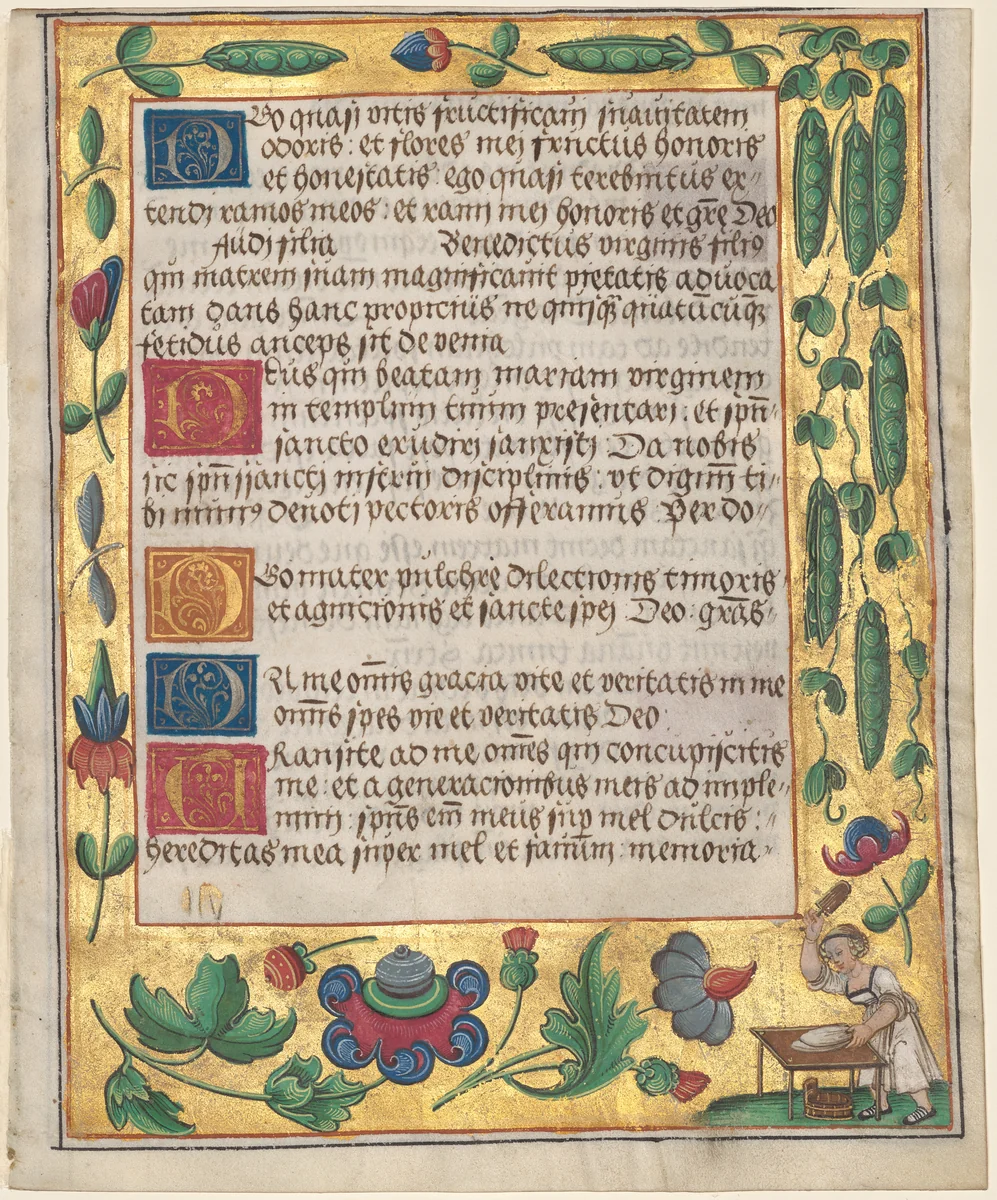 Ego quasi vitis fructificavi suavitatem
odoris : et flores mei fructus honoris
et honestatis : ego quasi terebintus ex-
tendi ramos meos : et rami mei honoris et grē Deo
Audi filia Benedictus virginis filiꝰ
qui matrem suam magnificavit pietatis advoca
tam dans hanc propicius ne quisqȝ quātūcūqȝ
fetidus anceps sit de venia
Deus qui beatam mariam virginem
in templum tuum presentari : et spū
sancto erudiri sanxisti : Da nobis
sic spū sancti instrui disciplinis : vt dignū ti-
bi munꝰ devoti pectoris offeramus : Per do-
Ego mater pulchrę dilectionis timoris
et agnicionis et sancte spei Deo grās-
IN me oīnis gracia vite et veritatis in me
omīs spes vie et veritatis Deo
TRansite ad me omēs qui concupiscitis
me : et a generacionibus meis ad imple-
mini : spūs em̄ meus sup mel dulcis : -
hereditas mea super mel et favum : memoria-